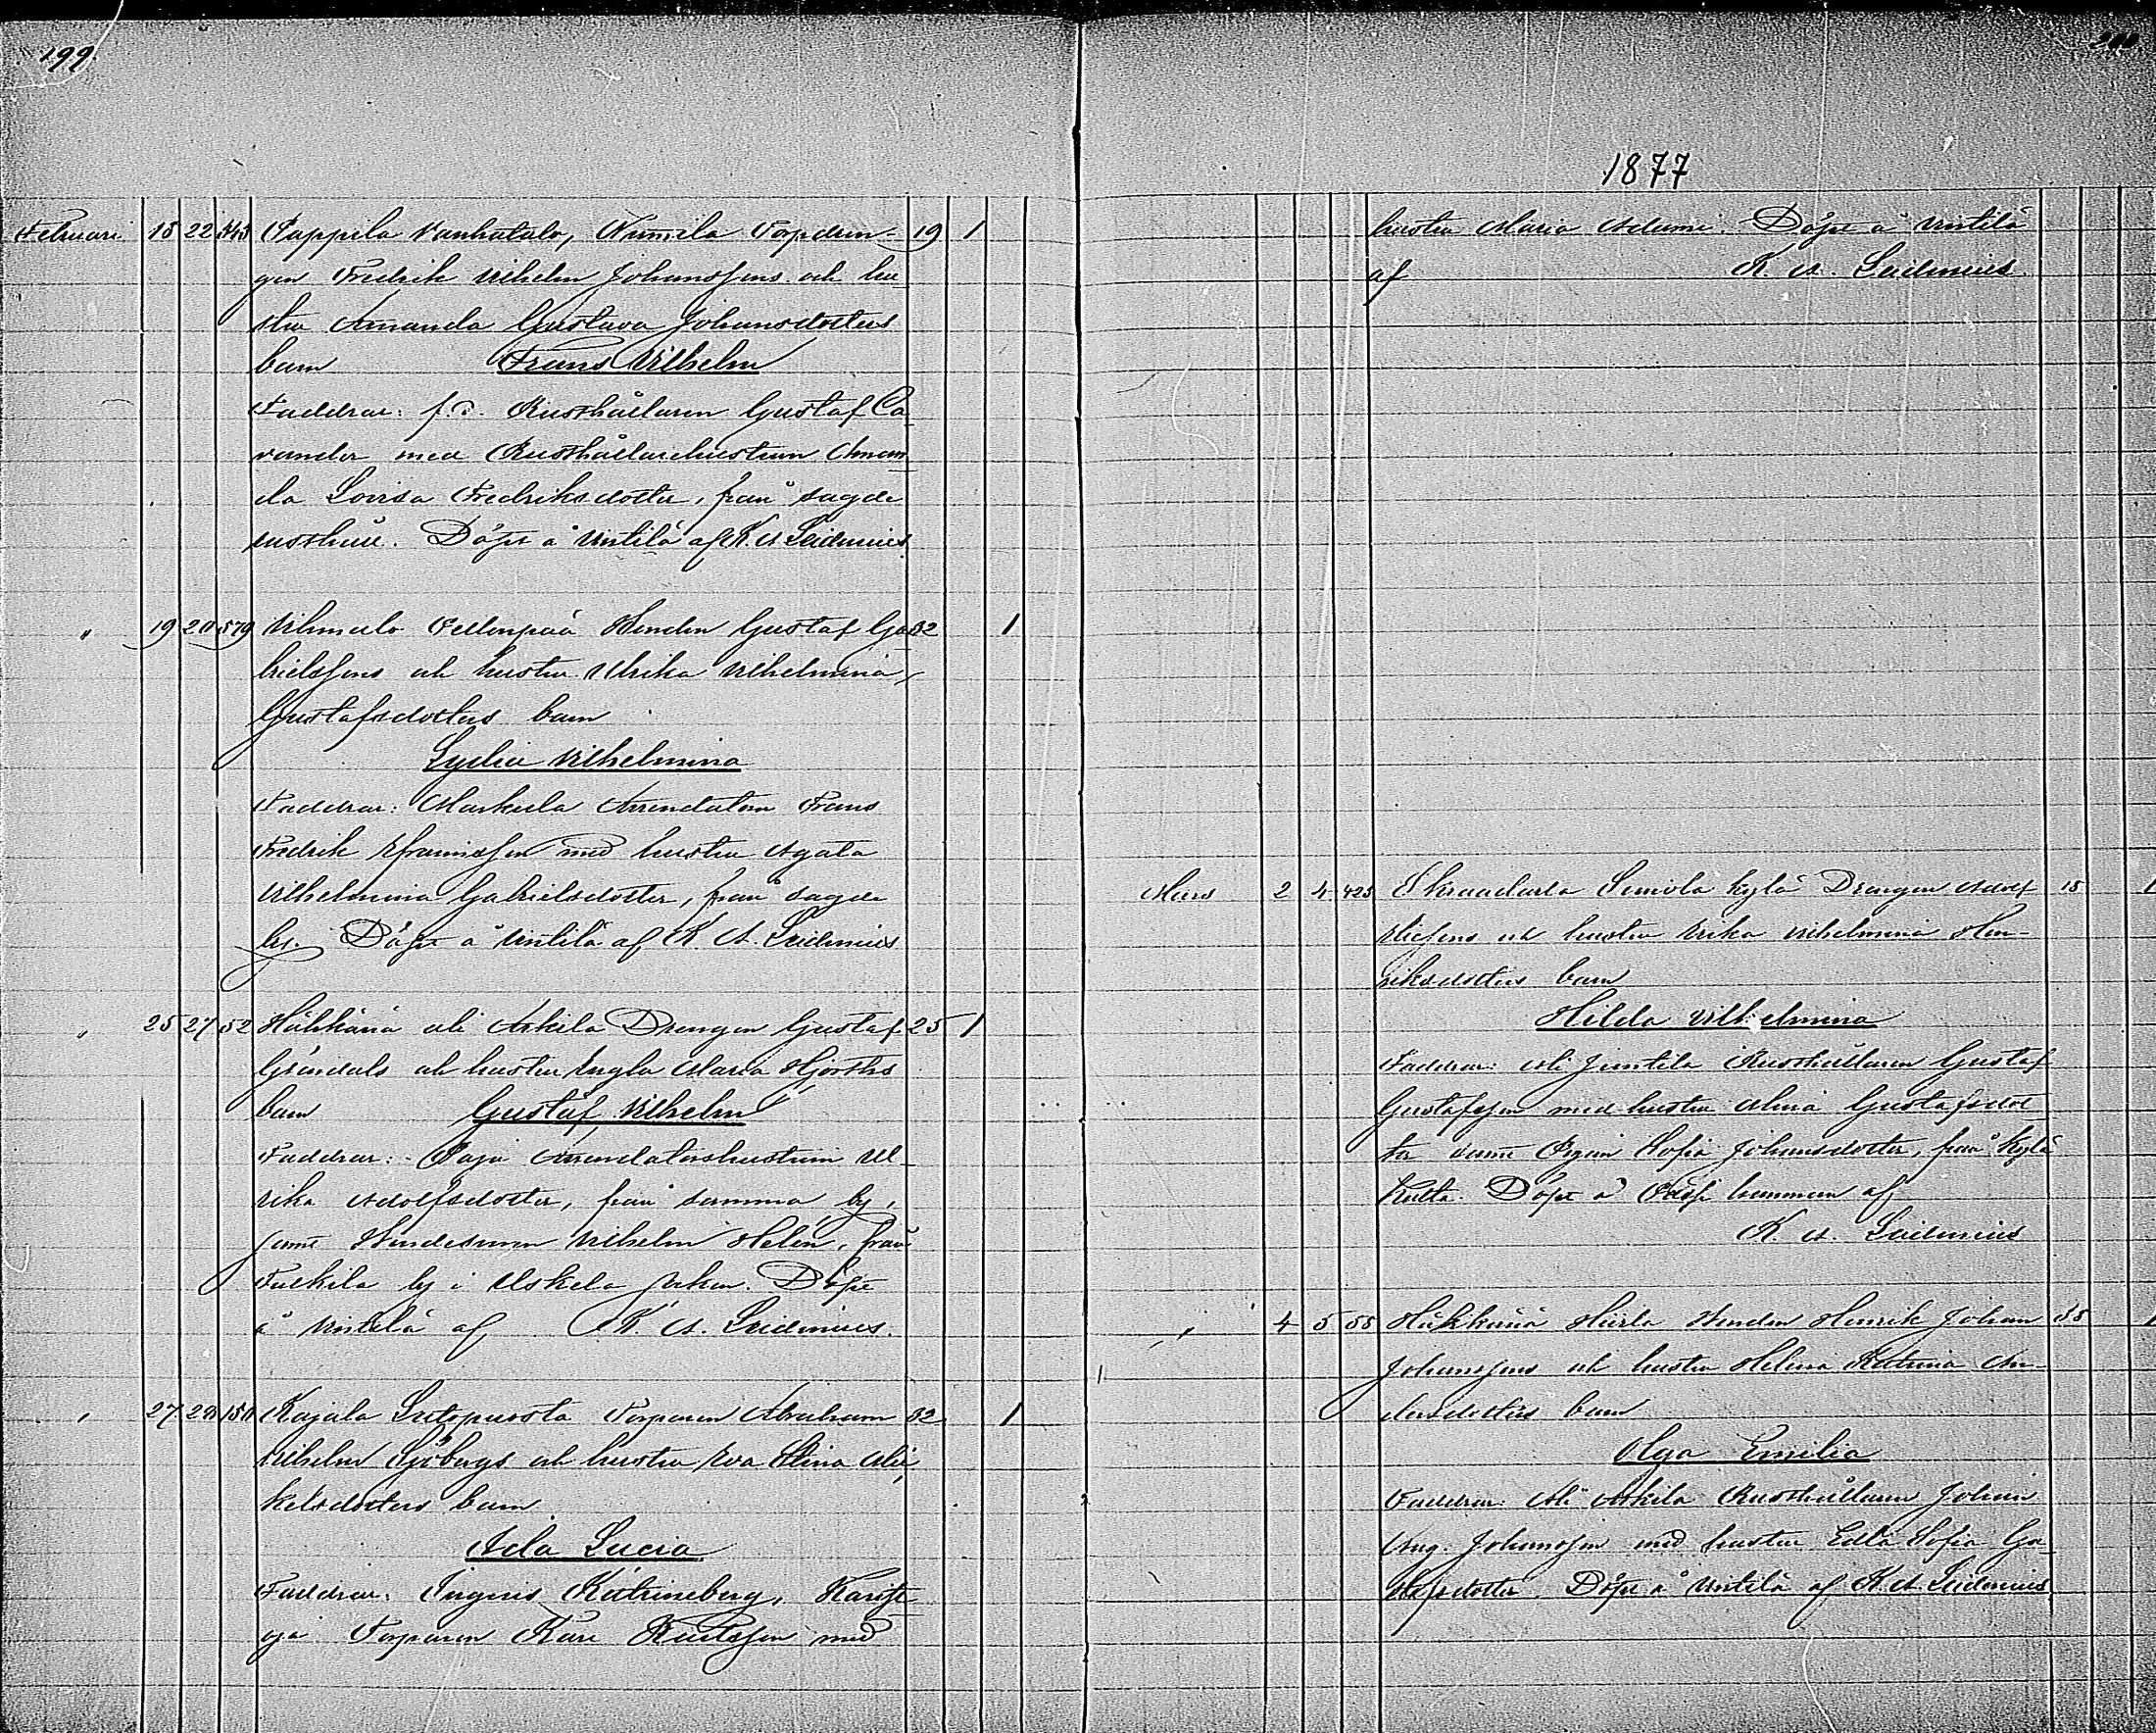 199.
Februari 18 22 348 Pappila Vanhatalo, Torpdrän- 19 1
gen Fredrik Vilhelm Johanssons och hu-
stru Amanda Gustava Johansdotters
barn Frans Vilhelm
Faddrar: f.d. Rusthållaren Gustaf Ca
vander med Rusthållarehustrun Aman
da Lovisa Fredriksdotter, från sagde
rusthåll. Döpt å Untilä af K. A. Leidenius
" 19 20 579 Tellenpää Smeden Gustaf Ga 32 1
brielssons och hustru Ulrika Vilhelmina
Gustafsdotters barn
Lydia Vilhelmina
Faddrar: Markula Arrendatorn Frans
Fredrik Efraimsson med hustru Agata
Vilhelmina Gabrielsdotter, från sagde
by. Döpt å Untilä af K. A. Leidenius
" 25 27 52 Häkkänä ali Arkila Drengen Gustaf 25 1
Gröndals och hustru Engla Maria Hjorths
barn Gustaf Vilhelm
Faddrar: Paja Arrendatorshustrun Ul-
rika Adolfsdotter, från samma by,
samt Vilhelm Helén, från
by i Uskela socken. Döpt
å Untilä af K. A. Leidenius.
" 27 28 150 Kajala Torparen Abraham 32 1
Vilhelm Sjöbergs och hustru Eva Stina Mi
kelsdotters barn
Ada Lucia
Faddrar: Ingeris Katrineberg,
oja Torparen Karl Karlsson med
1877
hustru Maria Adami. Döpt å Untilä
af K. A. Leidenius
Mars 2 4 423 Skraadarla Simola kylä Drengen Adolf 18 1
och hustru Erika Vilhelmina Hen-
riksdotters barn
Hilda Vilhelmina
Faddrar: Ali Juntila Rusthållaren Gustaf
Gustafsson med hustru Gustafsdot
ter samt Pigan Sofia Johansdotter, från Kylä
Kulta. Döpt å af
K. A. Leidenius
" 4 5 55 Häkkänä Henrik Johan 38 1
Johanssons och hustru Helena Katrina An-
dersdotters barn
Olga Emilia
Faddrar: Ali Arkila Rusthållaren Johan
Aug. Johansson med hustru Edla Sofia Gu
stafsdotter. Döpt å Untilä af K. A. Leidenius